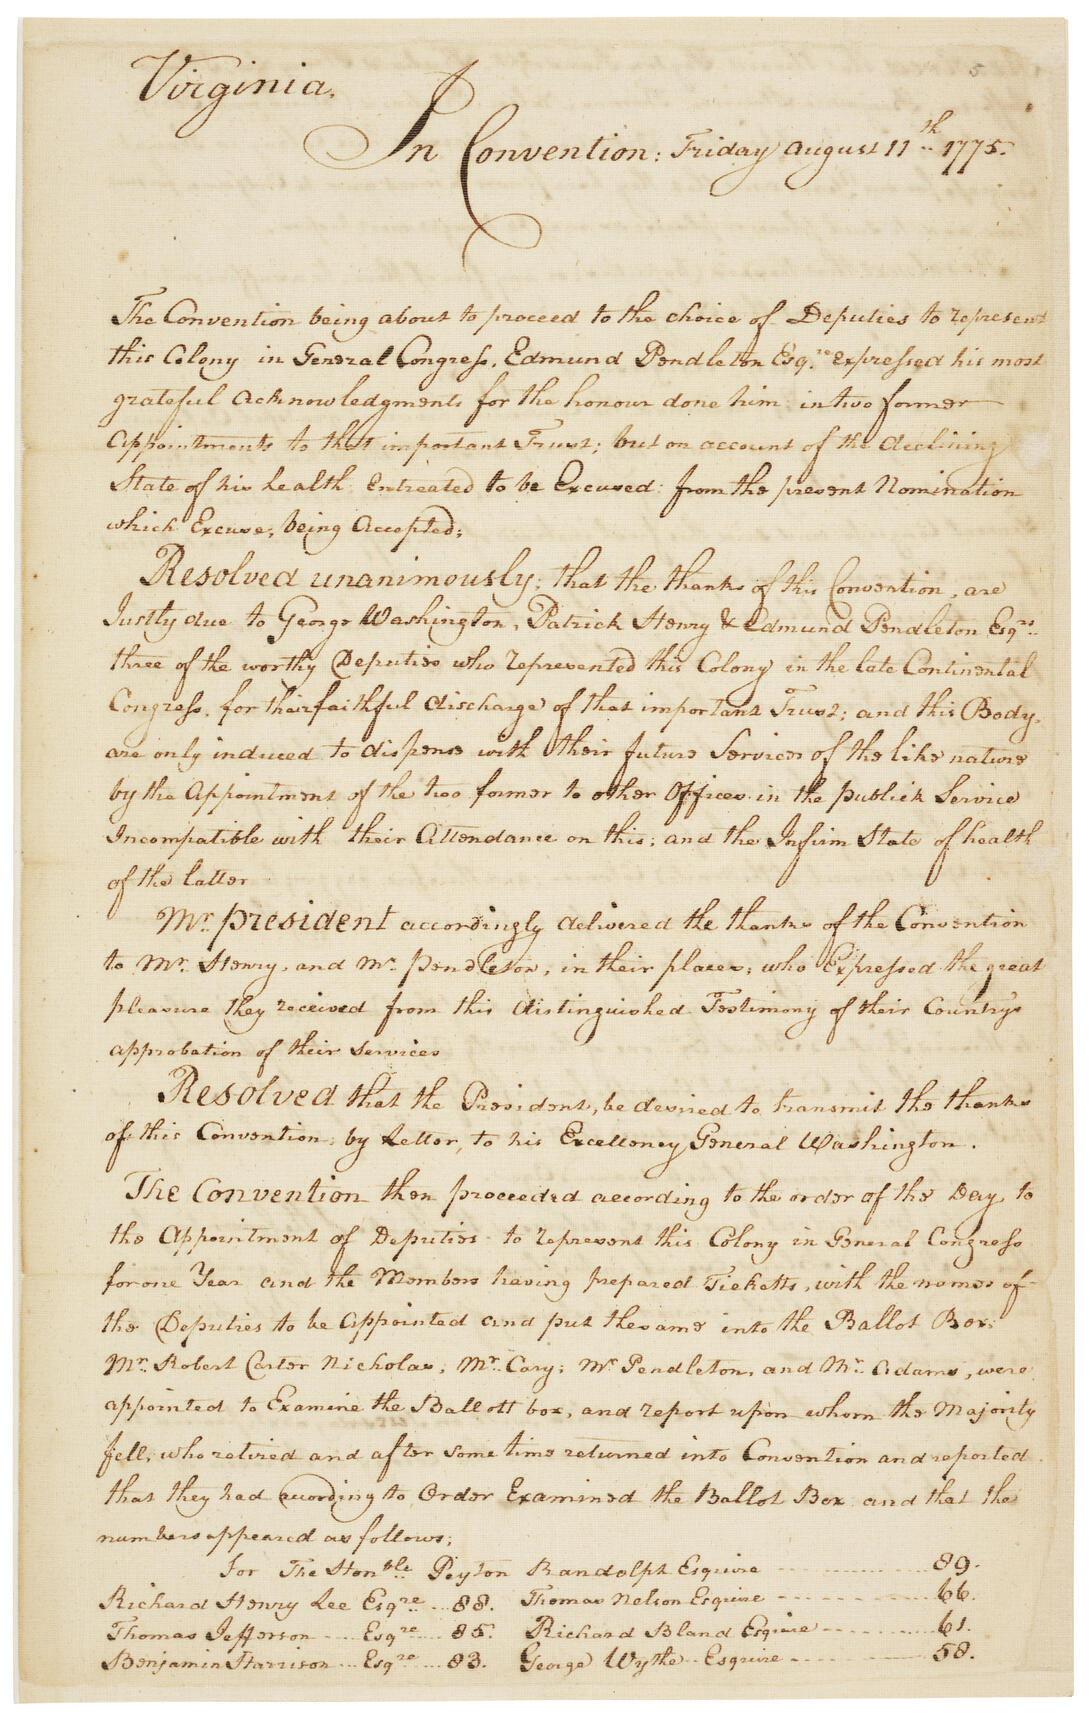 5
Virginia.
In Convention: Friday August 11th 1775.
The Convention being about to proceed to the choice of Deputies to represent
this Colony in General Congress. Edmund Pendleton Esq.re expressed his most
grateful acknowledgments for the honour done him in two former
appointments to that important Trust; but on account of the declining
State of his health Entreated to be Excused from the present Nomination
which Excuse, being Accepted;
Resolved unanimously; that the thanks of this Convention, are
Justly due to George Washington, Patrick Henry & Edmund Pendleton Esqrs.
three of the worthy Deputies who represented this Colony in the late Continental
Congress, for their faithful discharge of that important Trust; and this Body
are only induced to dispense with their future Services of the like nature
by the Appointment of the two former to other Offices in the publick Service
Incompatible with their Attendance on this; and the Infirm State of health
of the latter
Mr. President accordingly delivered the thanks of the Convention
to Mr. Henry, and Mr. Pendleton, in their places, who Expressed the great
pleasure they received from this distinguished Testimony of their Countrys
approbation of their Services
Resolved that the President, be desired to transmit the thanks
of this Convention, by Letter, to his Excellency General Washington.
The Convention then proceeded according to the order of the Day, to
the Appointment of Deputies to represent this Colony in General Congress
for one Year and the Members having prepared Ticketts, with the names of
the Deputies to be Appointed and put the same into the Ballot Box;
Mr. Robert Carter Nicholas, Mr. Cary; Mr. Pendleton, and Mr. Adams, were
appointed to Examine the Ballott box, and report upon whom the Majority
fell, who retired and after some time returned into Convention and reported
that they had according to Order Examined the Ballot Box and that the
numbers appeared as follows;
For The Honble. Peyton Randolph Esquire 89.
Richard Henry Lee Esqre 88. Thomas Nelson Esquire 66.
Thomas Jefferson Esqre 85. Richard Bland Esquire 61.
Benjamin Harrison Esqre 83. George Wythe Esquire 58.